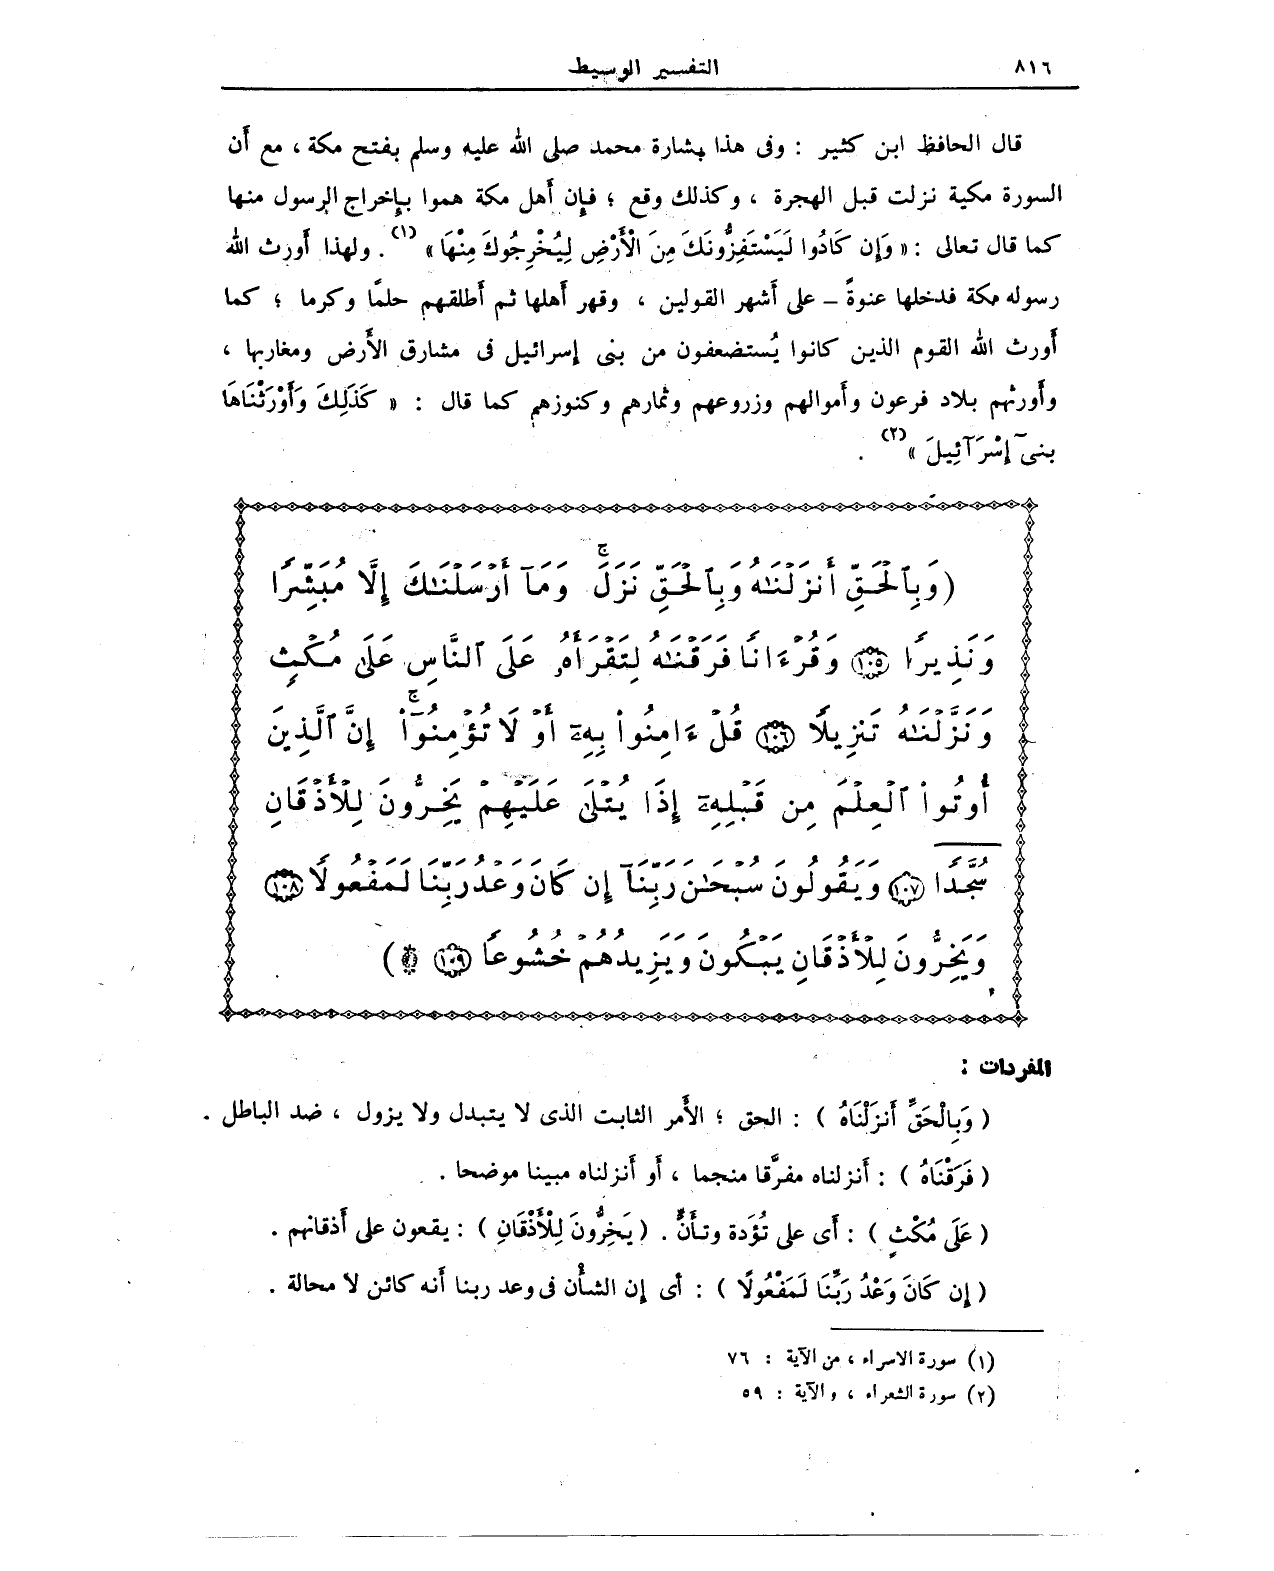 ٨١٦ التفسير الوسيط
قال الحافظ ابن كثير : وفى هذا بشارة محمد صلى الله عليه وسلم بفتح مكة ، مع أن
السورة مكية نزلت قبل الهجرة ، وكذلك وقع ؛ فإن أهل مكة هموا بإخراج الرسول منها
كما قال تعالى : « وَإِن كَادُوا لَيَسْتَفِزُّونَكَ مِنَ الْأَرْضِ لِيُخْرِجُوكَ مِنْهَا » (١) . ولهذا أورث الله
رسوله مكة فدخلها عنوةً – على أشهر القولين ، وقهر أهلها ثم أطلقهم حلمًا وكرما ؛ كما
أورث الله القوم الذين كانوا يُستضعفون من بنى إسرائيل فى مشارق الأرض ومغاربها ،
وأورثهم بلاد فرعون وأموالهم وزروعهم وثمارهم وكنوزهم كما قال : « كَذَلِكَ وَأَوْرَثْنَاهَا
بنىٓ إِسْرَآئِيلَ » (٢) .
(وَبِٱلْحَقِّ أَنزَلْنَٰهُ وَبِٱلْحَقِّ نَزَلَ ۚ وَمَآ أَرْسَلْنَٰكَ إِلَّا مُبَشِّرًا
وَنَذِيرًا ١٠٥ وَقُرْءَانًا فَرَقْنَٰهُ لِتَقْرَأَهُۥ عَلَى ٱلنَّاسِ عَلَىٰ مُكْثٍ
وَنَزَّلْنَٰهُ تَنزِيلًا ١٠٦ قُلْ ءَامِنُوا۟ بِهِۦٓ أَوْ لَا تُؤْمِنُوٓا۟ ۚ إِنَّ ٱلَّذِينَ
أُوتُوا۟ ٱلْعِلْمَ مِن قَبْلِهِۦٓ إِذَا يُتْلَىٰ عَلَيْهِمْ يَخِرُّونَ لِلْأَذْقَانِ
سُجَّدًا ١٠٧ وَيَقُولُونَ سُبْحَٰنَ رَبِّنَآ إِن كَانَ وَعْدُ رَبِّنَا لَمَفْعُولًا ١٠٨
وَيَخِرُّونَ لِلْأَذْقَانِ يَبْكُونَ وَيَزِيدُهُمْ خُشُوعًا ١٠٩ ۩)
المفردات :
( وَبِالْحَقِّ أَنزَلْنَاهُ ) : الحق ؛ الأمر الثابت الذى لا يتبدل ولا يزول ، ضد الباطل .
( فَرَقْنَاهُ ) : أنزلناه مفرَّقا منجما ، أو أنزلناه مبينا موضحا .
( عَلَى مُكْثٍ ) : أى على تُؤَدة وتأنٍّ . ( يَخِرُّونَ لِلْأَذْقَانِ ) : يقعون على أذقانهم .
( إِن كَانَ وَعْدُ رَبِّنَا لَمَفْعُولًا ) : أى إن الشأن فى وعد ربنا أنه كائن لا محالة .
(١) سورة الاسراء ، من الآية : ٧٦
(٢) سورة الشعراء ، والآية : ٥٩